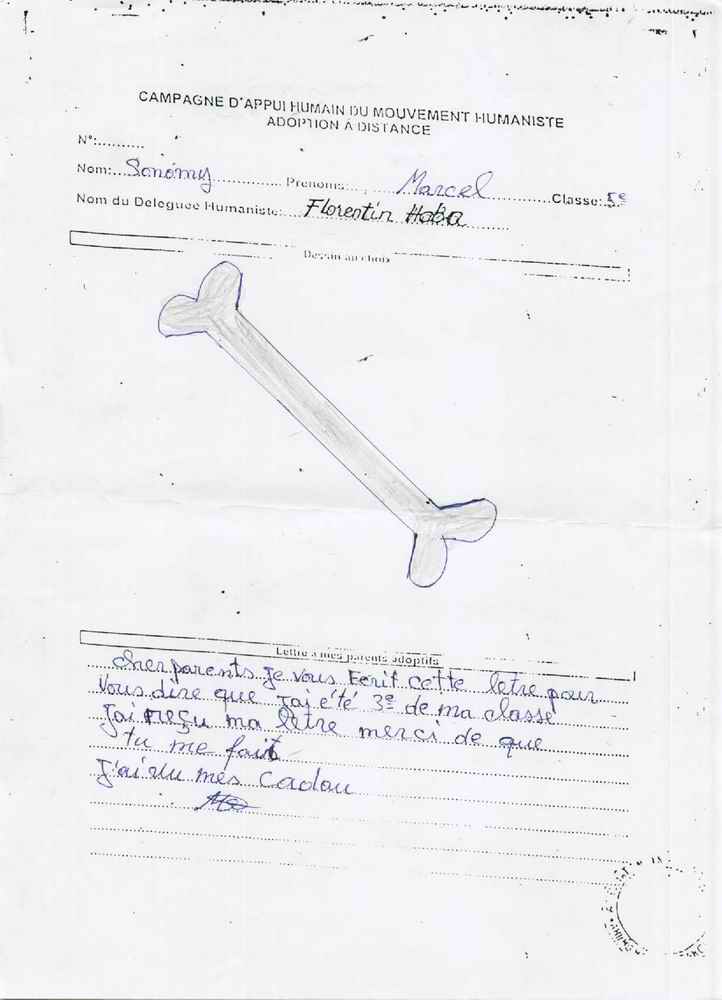 CAMPAGNE D'APPUI HUMAIN DU MOUVEMENT HUMANISTE
ADOPTION A DISTANCE
N°:..........
Nom: Sonomy Prenoms: Marcel Classe: 5e
Nom du Deleguee Humaniste: Florentin Haba
Dessin au choix
Lettre a mes parents adoptifs
cher parents je vous Ecrit cette letre pour
Vous dire que j'ai été 3e de ma classe
J'ai reçu ma letre merci de que
tu me fait
J'ai vu mes Cadau